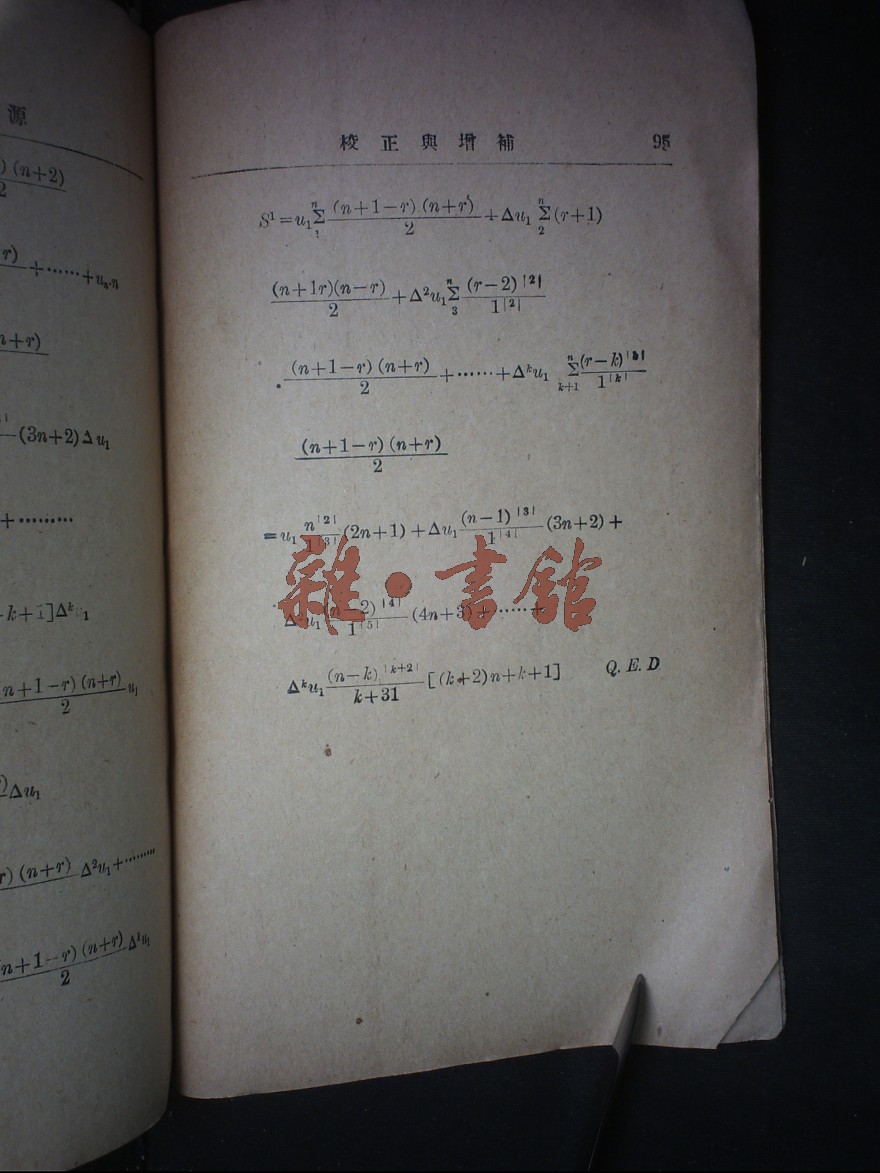 源
) (n+2)
2
r)
+……+uₙ.ₙ
n+r)
-(3n+2)Δu₁
+………
-k+1]Δᵏu₁
n+1-r)(n+r) u₁
2
)Δu₁
r)(n+r) Δ²u₁+………
n+1-r)(n+r)
2
校正與增補 95
S¹=u₁ Σ₁ⁿ (n+1-r)(n+r)/2 +Δu₁ Σ₂ⁿ (r+1)
(n+1r)(n-r)/2 +Δ²u₁ Σ₃ⁿ (r-2)^|2|/1^|2|
(n+1-r)(n+r)/2 +……+Δᵏu₁ Σₖ₊₁ⁿ (r-k)^|k|/1^|k|
(n+1-r)(n+r)/2
=u₁ n^|2|/1^|3| (2n+1)+Δu₁ (n-1)^|3|/1^|4| (3n+2)+
Δ²u₁ (n-2)^|4|/1^|5| (4n+3)+……+
Δᵏu₁ (n-k)^|k+2|/k+31 [(k+2)n+k+1] Q.E.D
雜·書館